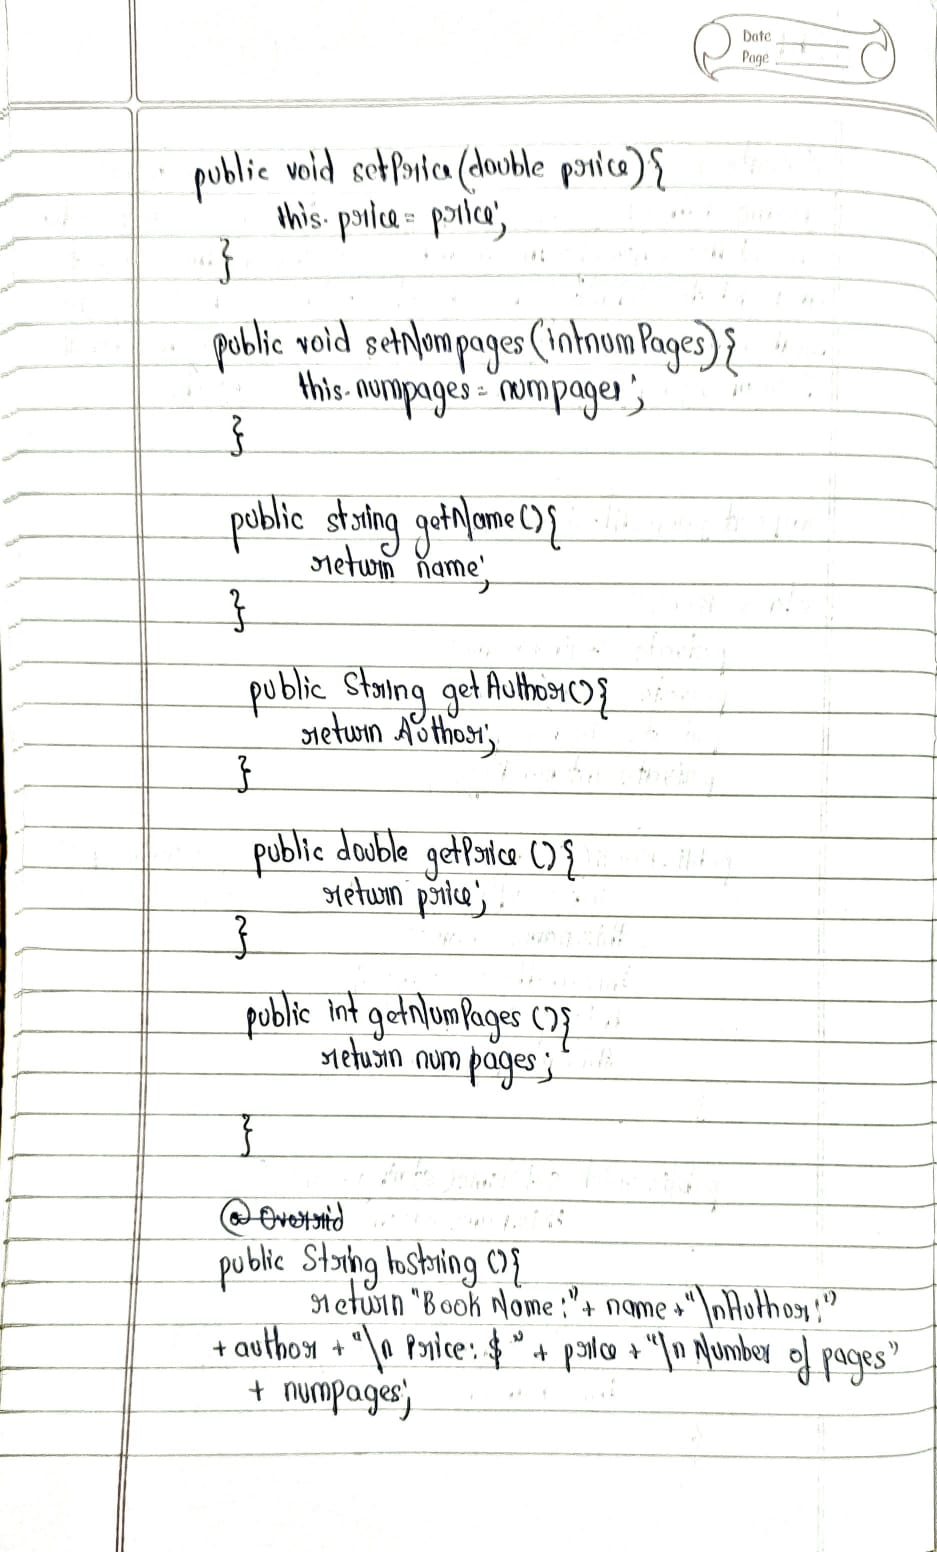 Date
Page
public void setPrice(double price){
this.price = price;
}
public void setNumpages(intnumPages){
this.numpages = numpages;
}
public string getName(){
return name;
}
public String getAuthor(){
return Author;
}
public double getPrice (){
return price;
}
public int getNumPages (){
return num pages;
}
@Overrid
public String tostring (){
return "Book Name:"+ name +"\nAuthor:"
+ author + "\n Price: $" + price + "\n Number of pages"
+ numpages;